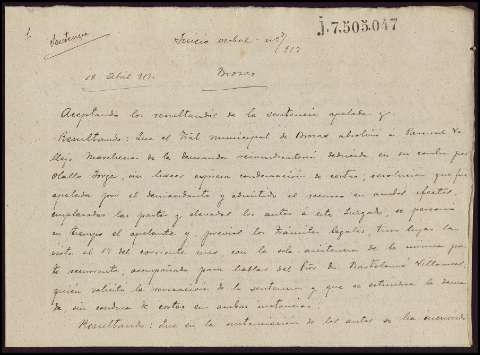 J.7.505.047
Sentencia
Juicio verbal
18 Abril 917.
Brozas
Aceptando los resultandos de la sentencia apelada y
Resultando: Que el Tbal municipal de Brozas absolvió a
de la demanda deducida en su contra por
Olallo Jorge, sin hacer expresa condenación de costas, resolución que fué
apelada por el demandante y admitido el recurso en ambos efectos,
emplazadas las partes y elevados los autos a este Juzgado, se personó
en tiempo el apelante y previos los trámites legales, tuvo lugar la
vista el 17 del corriente mes con la sola asistencia de la misma par-
te recurrente, acompañada para hablar del de Bartolomé Villamor,
quién solicitó la revocación de la sentencia y que se estimara la deman-
da sin condena de costas en ambas instancias.
Resultando: Que en la sustanciación de los autos se ha